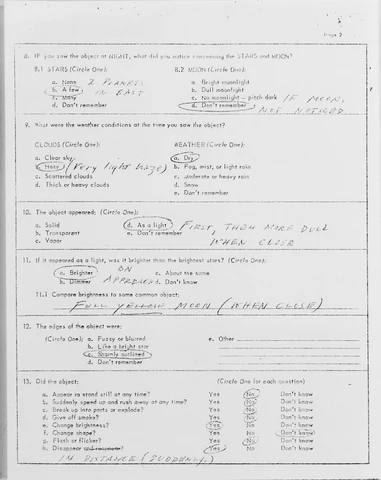 Page 2
8. IF you saw the object at NIGHT, what did you notice concerning the STARS and MOON?
8.1 STARS (Circle One): 8.2 MOON (Circle One):
a. None 2 PLANETS a. Bright moonlight
b. A few IN EAST b. Dull moonlight
c. Many c. No moonlight – pitch dark IF MOON,
d. Don't remember d. Don't remember NOT NOTICED
9. What were the weather conditions at the time you saw the object?
CLOUDS (Circle One): WEATHER (Circle One):
a. Clear sky a. Dry
b. Hazy (Very light haze) b. Fog, mist, or light rain
c. Scattered clouds c. Moderate or heavy rain
d. Thick or heavy clouds d. Snow
e. Don't remember
10. The object appeared: (Circle One):
a. Solid d. As a light FIRST, THEN MORE DULL
b. Transparent e. Don't remember WHEN CLOSE
c. Vapor
11. If it appeared as a light, was it brighter than the brightest stars? (Circle One):
a. Brighter ON c. About the same
b. Dimmer APPROACH d. Don't know
11.1 Compare brightness to some common object:
FULL YELLOW MOON (WHEN CLOSE)
12. The edges of the object were:
(Circle One): a. Fuzzy or blurred e. Other
b. Like a bright star
c. Sharply outlined
d. Don't remember
13. Did the object: (Circle One for each question)
a. Appear to stand still at any time? Yes No Don't know
b. Suddenly speed up and rush away at any time? Yes No Don't know
c. Break up into parts or explode? Yes No Don't know
d. Give off smoke? Yes No Don't know
e. Change brightness? Yes No Don't know
f. Change shape? Yes No Don't know
g. Flash or flicker? Yes No Don't know
h. Disappear and reappear? Yes No Don't know
IN DISTANCE (SUDDENLY)